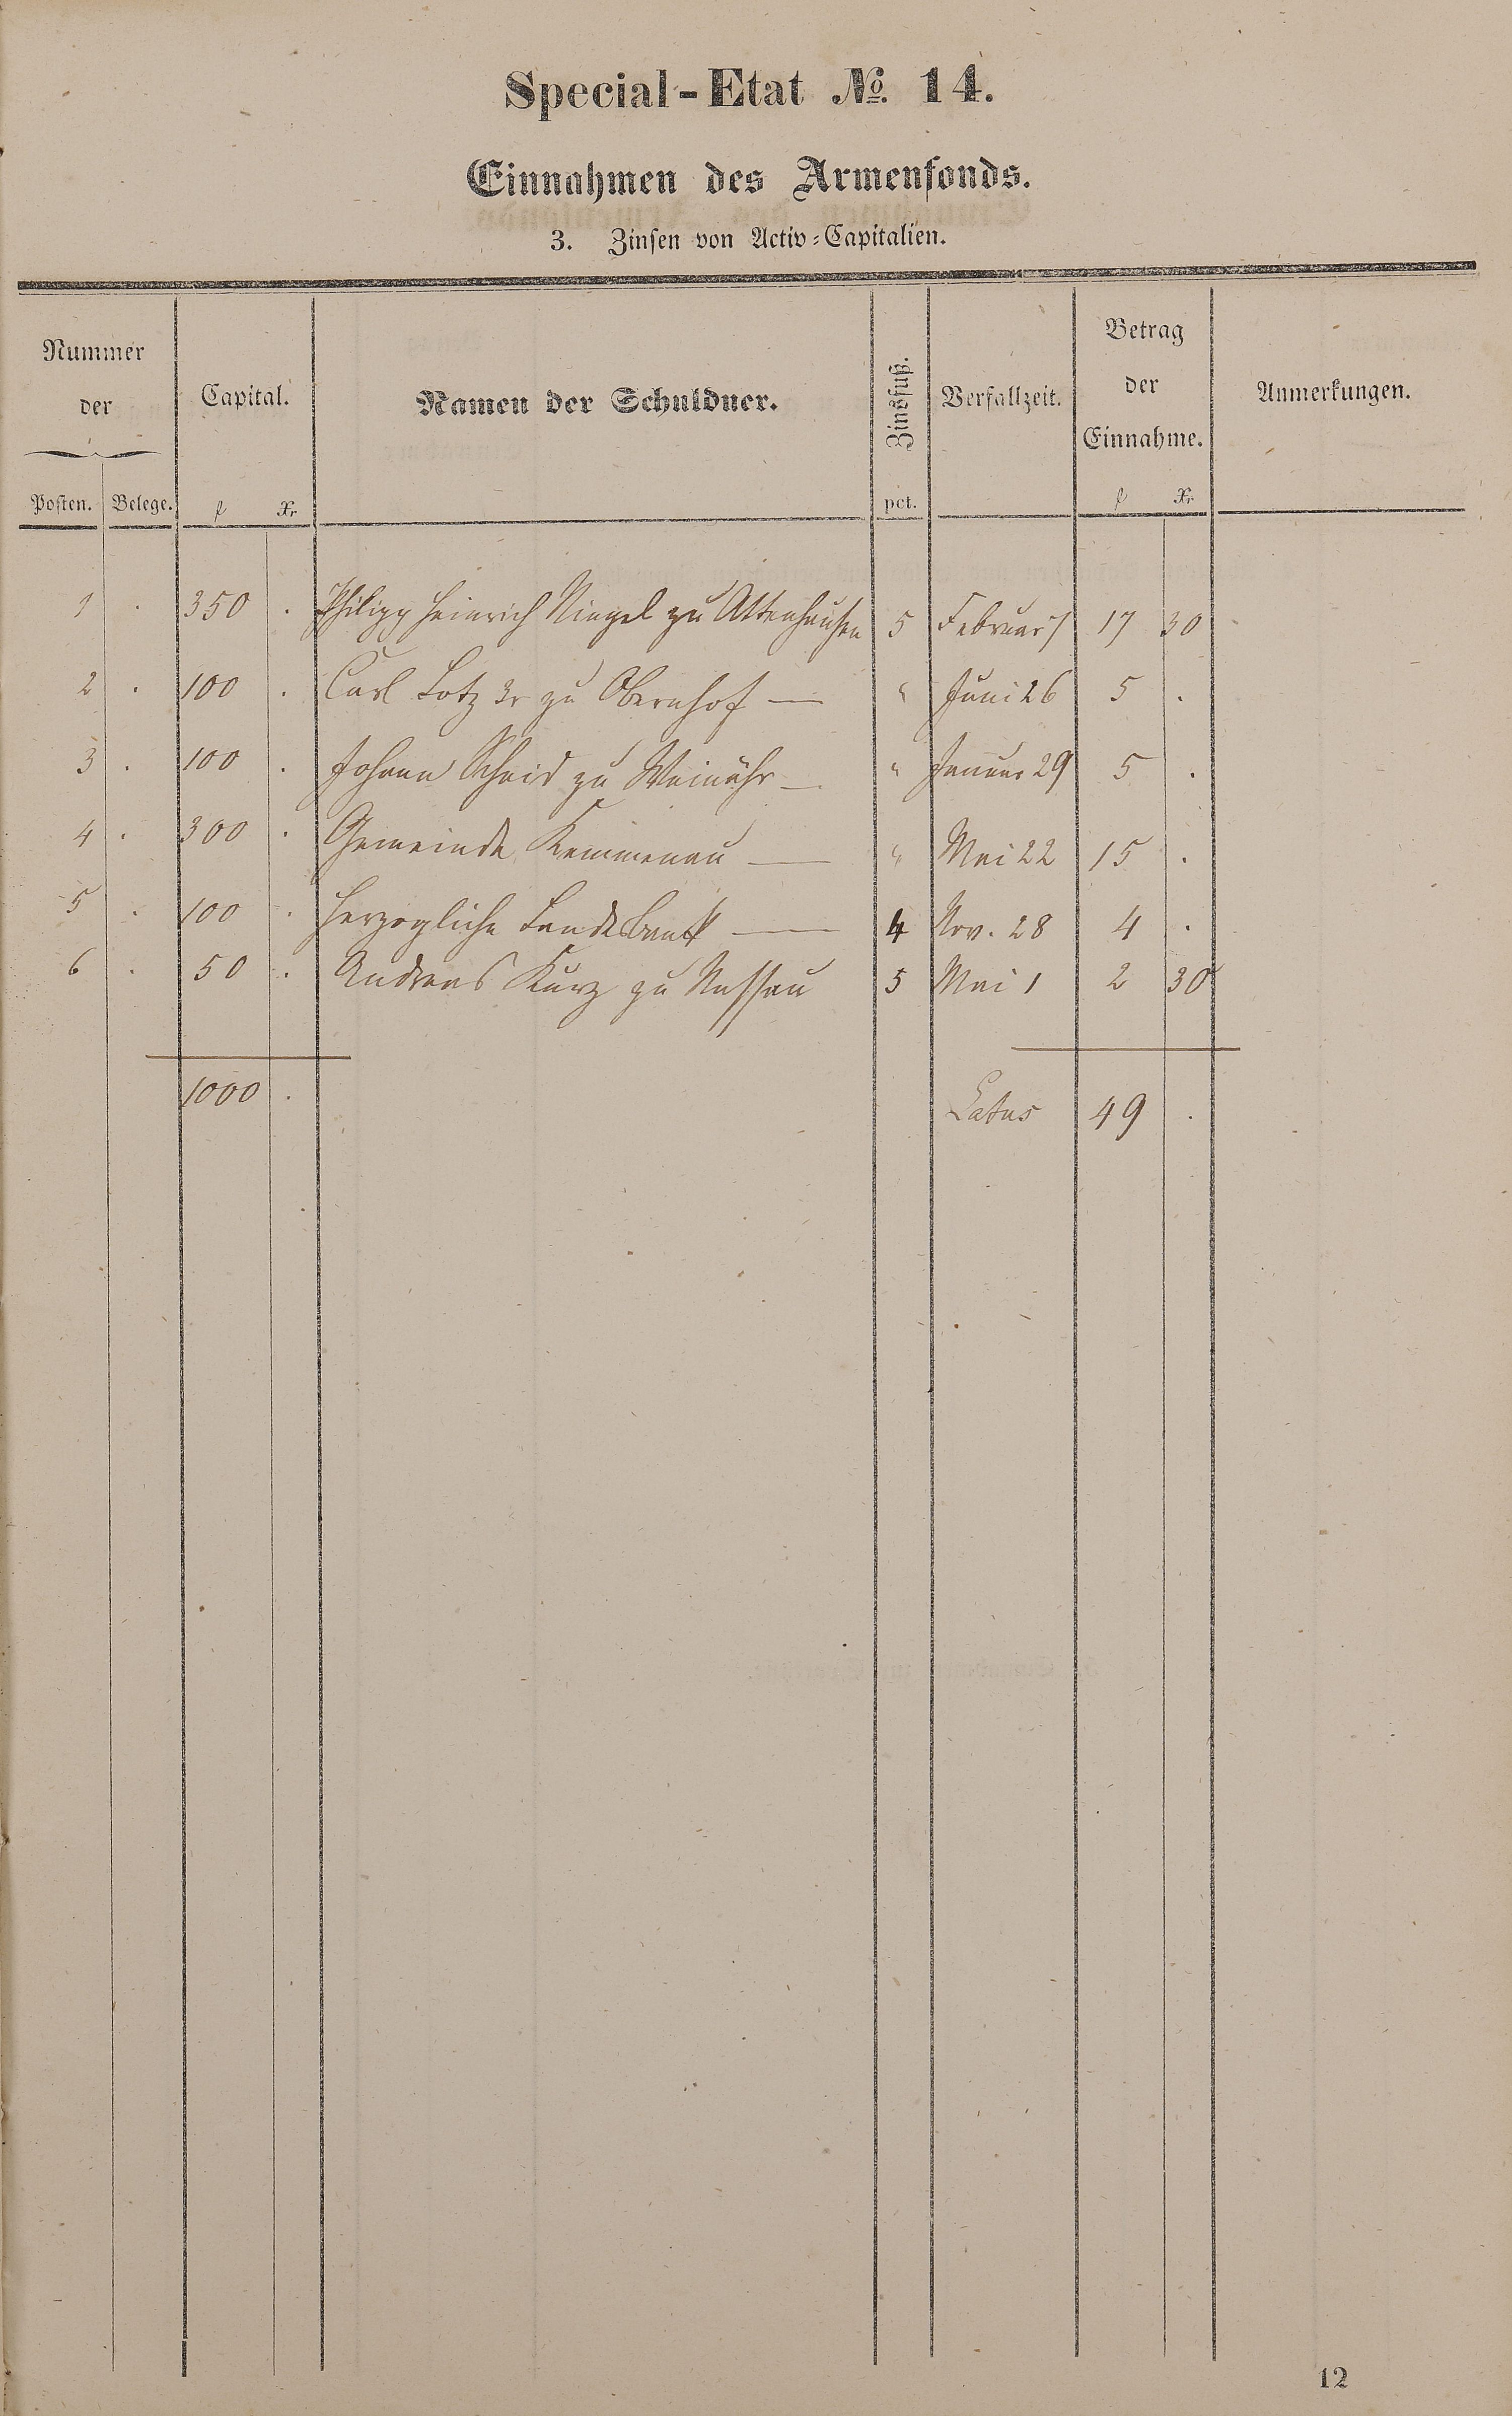 Special-Etat No. 14.
Einnahmen des Armenfonds.
3. Zinsen von Activ-Capitalien.
Nummer der
Posten. Belege.
Capital.
f Xr
Namen der Schuldner.
Zinsfuß.
pct.
Verfallzeit.
Betrag der Einnahme.
f Xr
Anmerkungen.
1 . 350 . Philipp Heinrich zu Attenhausen 5 Februar 7 17 30
2 . 100 . Carl Lotz 3r zu Obernhof — " Juni 26 5 .
3 . 100 . Johann Scheid zu Weinähr — " Januar 29 5 .
4 . 300 . Gemeinde Kemmenau — " Mai 22 15 .
5 . 100 . Herzogliche Landesbank — 4 Nov. 28 4 .
6 . 50 . Andreas Kurz zu Nassau 5 Mai 1 2 30
1000 . Latus 49 .
12